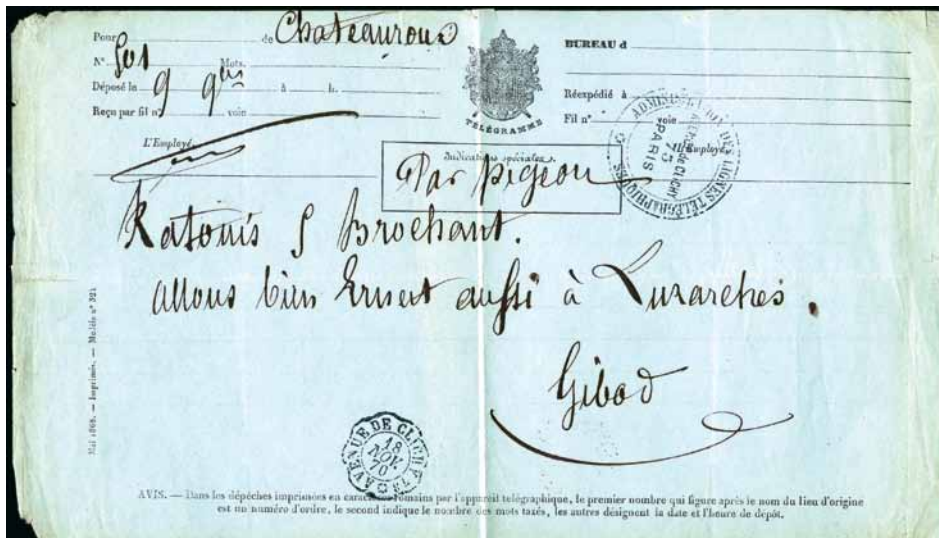 Pour de Chateauroux
N° 501 Mots.
Déposé le 9 9bre à h.
Reçu par fil n° voie
L'Employé,
TÉLÉGRAMME
BUREAU d
Réexpédié à
Fil n° voie
L'Employé,
ADMINISTRATION DES LIGNES TÉLÉGRAPHIQUES
AVENUE de CLICHY
75
PARIS
Indications spéciales.
Par pigeon
Katouis 5 Brochant.
allons bien Ernest aussi à Luzarches.
Gibod
AVENUE DE CLICHY 75
18
NOV.
70
Mai 1868. — Imprimés. — Modèle n° 321
AVIS. — Dans les dépêches imprimées en caractères romains par l'appareil télégraphique, le premier nombre qui figure après le nom du lieu d'origine
est un numéro d'ordre, le second indique le nombre des mots taxés, les autres désignent la date et l'heure de dépôt.